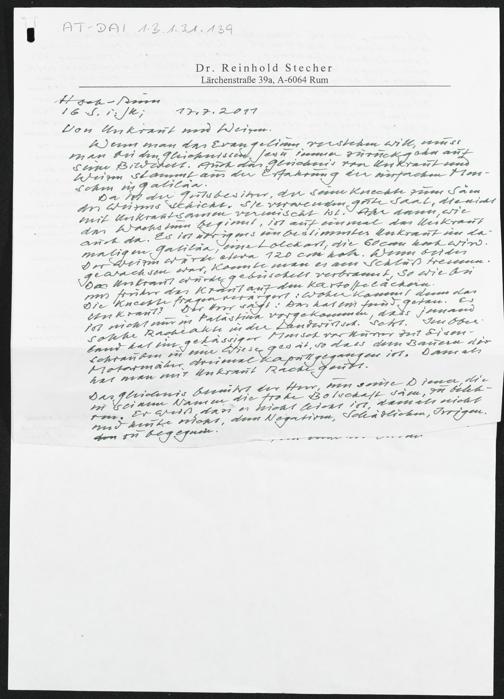 AT-DAI 1.3.1.31.139
Dr. Reinhold Stecher
Lärchenstraße 39a, A-6064 Rum
Hoch-Rum
16 S. i. JK, 17.7.2011
Von Unkraut und Weizen.
Wenn man das Evangelium verstehen will, muss
man bei den Gleichnissen Jesu immer zurückgehn auf
seine Bildwelt. Auch das Gleichnis von Unkraut und
Weizen stammt aus der Erfahrung der einfachen Men-
schen in Galiläa.
Da ist der Gutsbesitzer, der seine Knechte zum Säen
des Weizens schickt. Sie verwenden gute Saat, die nicht
mit Unkrautsamen vermischt ist. Aber dann, wie
das Wachstum beginnt, ist auf einmal das Unkraut
auch da. Es ist übrigens ein bestimmtes Unkraut im da-
maligen Galiläa, eine Lolchart, die 60 cm hoch wird.
Der Weizen würde etwa 120 cm hoch. Wenn beides
gewachsen war, konnte man es am Schluß trennen.
Das Unkraut würde gebüschelt verbrannt, so wie bei
uns früher das Kraut auf den Kartoffeläckern.
Die Knechte fragen verärgert: Woher kommt denn das
Unkraut? Der Herr sagt: Das hat ein Feind getan. Es
ist nicht nur in Palästina vorgekommen, dass jemand
solche Racheakte in der Landwirtsch. setzt. Im Ober-
land hat ein gehässiger Mensch vor kurzer Zeit Eisen-
schrauben in eine Wiese gesät, so dass dem Bauern die
Motormäher dreimal kaputtgegangen ist. Damals
hat man mit Unkraut Rache geübt.
Das Gleichnis benützt der Herr, um seine Diener, die
in seinem Namen die frohe Botschaft säen, zu beleh-
ren. Er weiß, dass es nicht leicht ist, damals nicht
und heute nicht, dem Negativen, Schädlichen, Irrigen
zu begegnen.